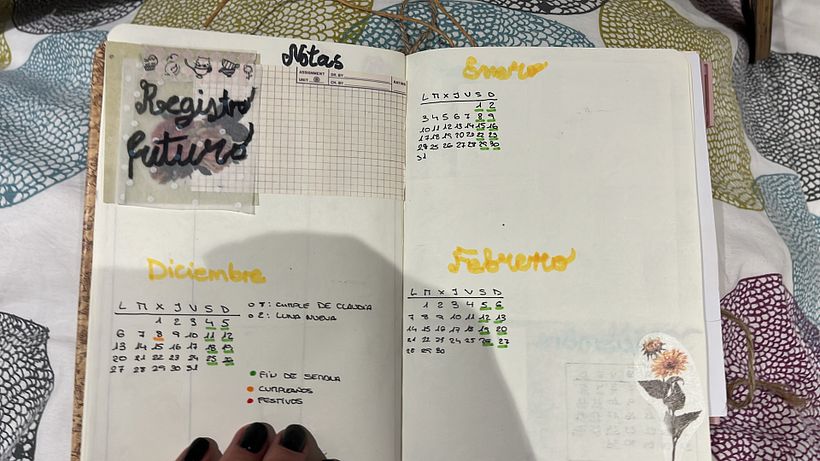 Notas
Registro
futuro
ASSIGNMENT
UNIT
DR. BY
CH. BY
Diciembre
L M X J V S D
1 2 3 4 5
6 7 8 9 10 11 12
13 14 15 16 17 18 19
20 21 22 23 24 25 26
27 28 29 30 31
7: CUMPLE DE CLAUDIA
2: LUNA NUEVA
FIN DE SEMANA
CUMPLEAÑOS
FESTIVOS
Enero
L M X J V S D
1 2
3 4 5 6 7 8 9
10 11 12 13 14 15 16
17 18 19 20 21 22 23
24 25 26 27 28 29 30
31
Febrero
L M X J V S D
1 2 3 4 5 6
7 8 9 10 11 12 13
14 15 16 17 18 19 20
21 22 23 24 25 26 27
28 29 30